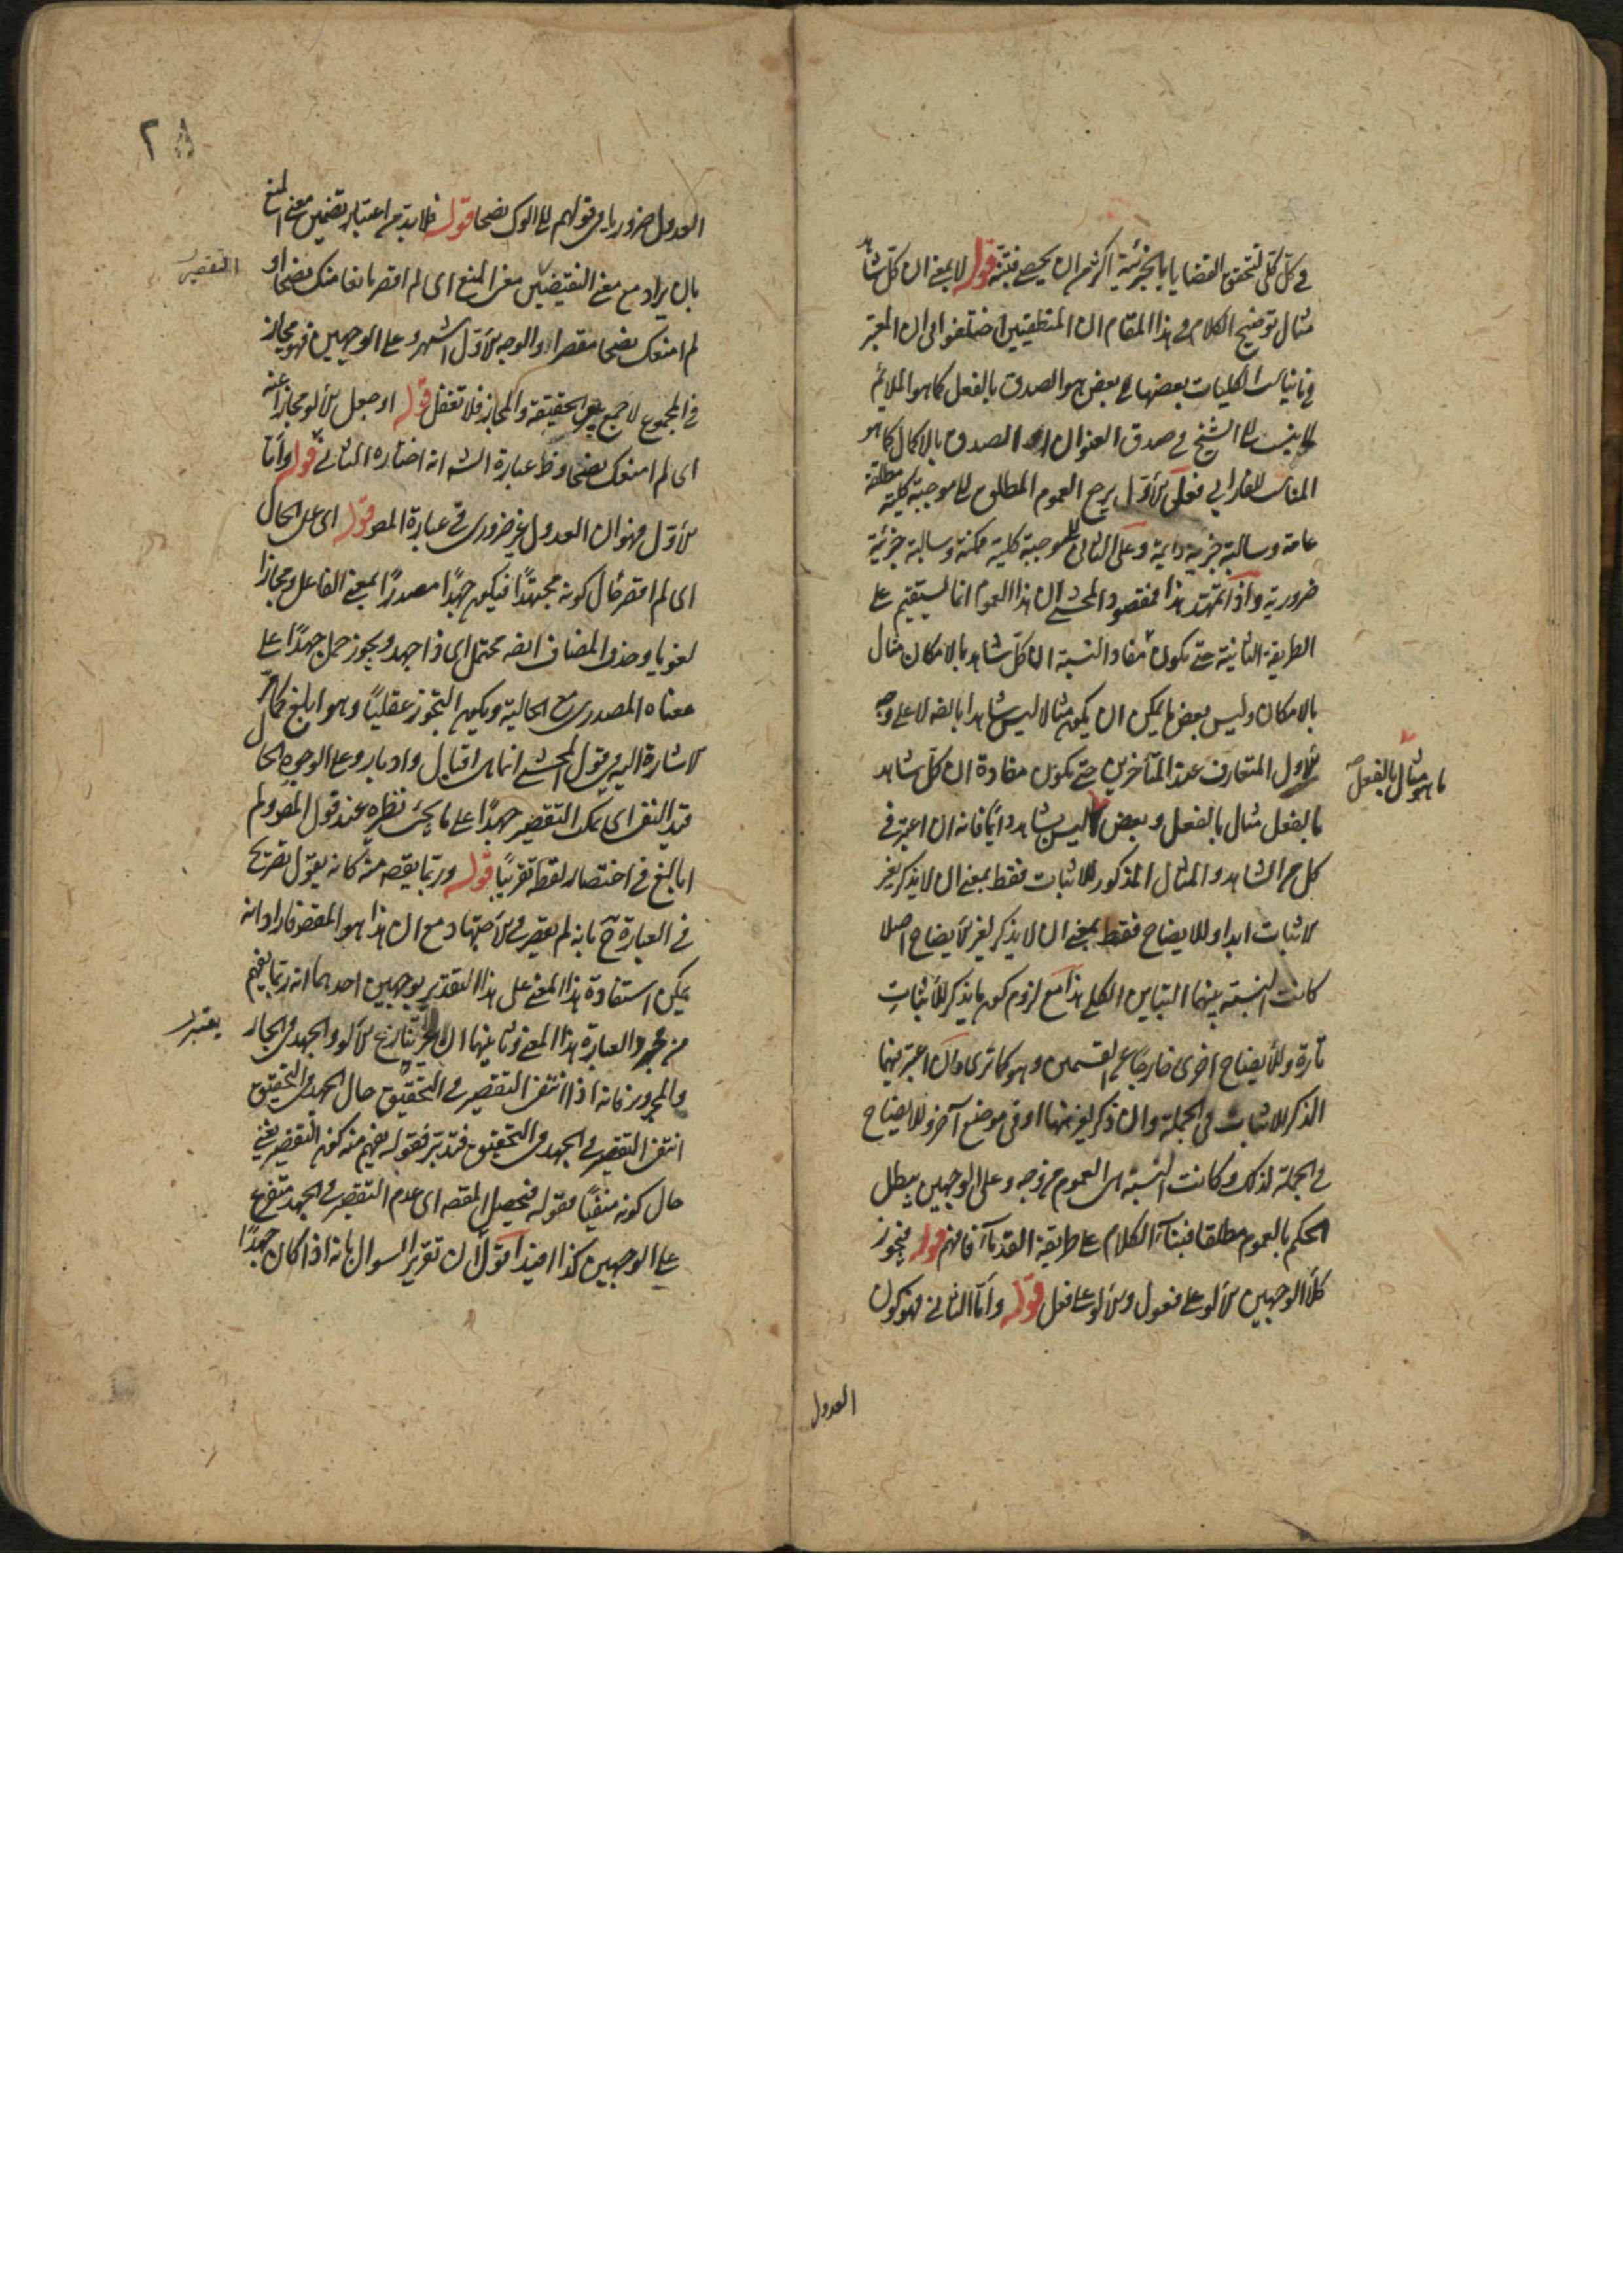 في كل كلي لتحقق القضايا بالجزئية اكثر من ان يحصى فتنبه قوله لا بمعنى ان كل شاهد
مثال توضيح الكلام في هذا المقام ان المنطقيين اختلفوا في ان المعتبر
في تباين الكليات بعضها مع بعض هو الصدق بالفعل كما هو الملائم
الشيخ في صدق العنوان او الصدق بالامكان كما هو
المناسب للفارابي فعلى الاول يرجع العموم المطلق الى موجبة كلية مطلقة
عامة وسالبة جزئية دائمة وعلى الثاني الى موجبة كلية ممكنة وسالبة جزئية
ضرورية واذا تمهد هذا فمقصود المحشي ان هذا العموم انما يستقيم على
الطريقة الثانية حتى يكون مفاد النسبة ان كل شاهد بالامكان مثال
بالامكان وليس بعض ما يمكن ان يكون مثالا ليس شاهدا بالضه لا على وجه
الاول المتعارف عند المتأخرين حتى يكون مفادة ان كل شاهد
ما هو مثال بالفعل صح
بالفعل مثال بالفعل وبعض ليس بشاهد دائما فانه ان اعتبر في
كل من الشاهد والمثال المذكور للاثبات فقط بمعنى ان لا يذكر لغير
لاثبات ابدا وللايضاح فقط بمعنى ان لا يذكر لغير الايضاح اصلا
كانت النسبة بينهما التباين الكلي هذا مع لزوم كون ما يذكر للاثبات
تارة وللايضاح اخرى خارجا عن القسمين وهو كما ترى وان اعتبر فيهما
الذكر للاثبات في الجملة وان ذكر لغيرهما او في موضع آخر وللايضاح
في الجملة لذلك وكانت النسبة هي العموم من وجه وعلى الوجهين يبطل
الحكم بالعموم مطلقا فبناء الكلام على طريقة القدماء فافهم قوله فيجوز
كلا الوجهين الالو على فعول والالو على فعل قوله واما الثاني فهو كون
العدول
٢٨
العدول ضروريا في قولهم لا الوك نصحا قوله فلا بد من اعتبار تضمين معنى المنع
التقصير
بان يراد مع معنى النقيضين معنى المنع اى لم اقصر مانعا منك نصحا او
لم امنعك نصحا مقصرا والوجه الاول اشهر وعلى الوجهين فهو مجاز
في المجموع لا جمع بين الحقيقة والمجاز فلا تغفل قوله او جعل الالو مجازا عنه
اى لم امنعك نصحا وظ عبارة الشه انه اختاره الثاني قوله واما
الاول فهو ان العدول غير ضرورى في عبارة المص قوله اى على الحال
اى لم اقصر حال كونه مجتهدا فيكون جهدا مصدرا بمعنى الفاعل ومجازا
لغويا وحذف المضاف ايضه محتمل اى ذا جهد ويجوز حمل جهدا على
معناه المصدرى مع الحالية ويكون التجوز عقليا وهو ابلغ كما مر
الاشارة اليه في قول المحشي انما هي اقبال وادبار وعلى الوجه الحال
قيد النفى اى يمكن التقصير جهدا على ما يجئ نظره عند قول المص ولم
ابالغ في اختصار لفظه تقريبا قوله وربما يقصد منه كانه يقول تصريح
في العبارة ح بانه لم يقصر في الاجتهاد مع ان هذا هو المقصود فاراد انه
يمكن استفادة هذا المعنى على هذا التقدير بوجهين احدهما انه ربما يفهم
من مجرد العبارة هذا المعنى وثانيهما ان تنازع الالو والجهد في الجار
يعتبر
والمجرور فانه اذا انتفى التقصير في التحقيق حال الجهد في التحقيق
انتفى التقصير في الجهد في التحقيق فتدبر فقوله يفهم منه كون التقصير يعني
حال كونه منفيا فقوله فيحصل المقصه اى عدم التقصير في الجهد متفرع
على الوجهين كذا افيد اقول ان تقرير السوال بانه اذا كان جهدا